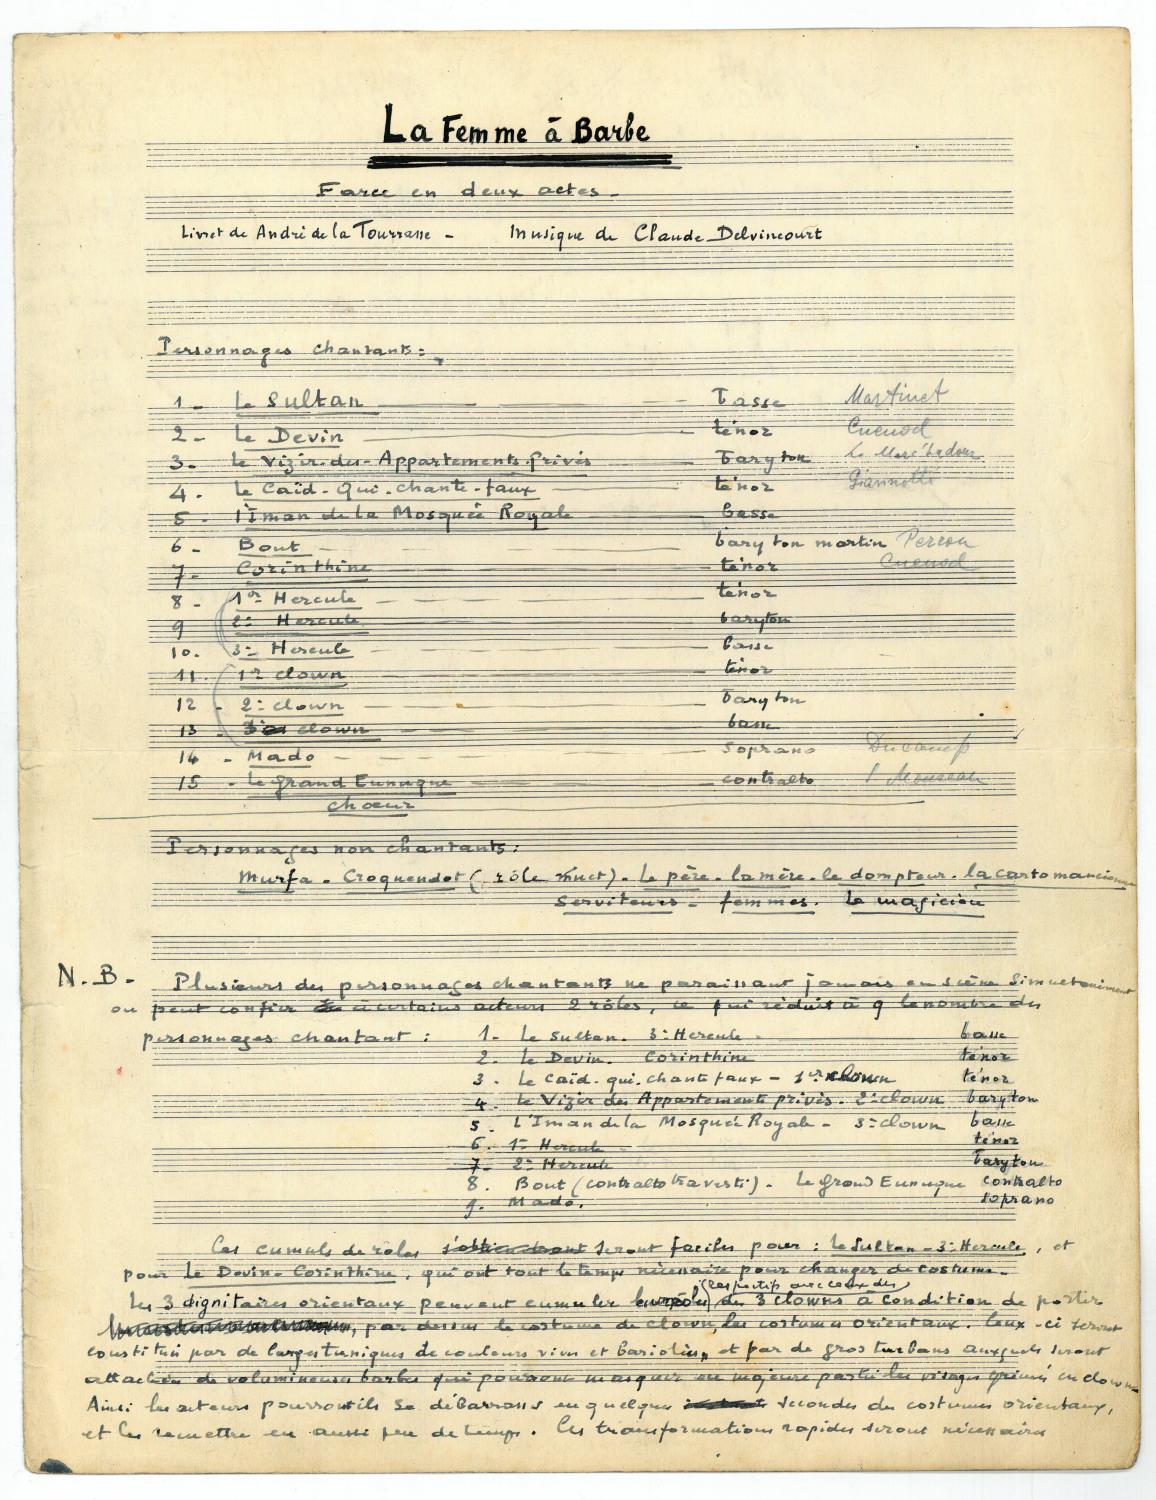 La Femme à Barbe
Farce en deux actes -
Livret de André de la Tourrasse - Musique de Claude Delvincourt
Personnages chantants :
1 - Le Sultan Basse Martinet
2 - Le Devin ténor Cuenod
3 - Le Vizir-des-Appartements-Privés Baryton
4 - Le Caïd-qui-chante-faux ténor Giannotti
5 - l'Iman de la Mosquée Royale basse
6 - Bout baryton martin Perron
7 - Corinthine ténor Cuenod
8 - 1er Hercule ténor
9 2e Hercule baryton
10. 3e Hercule basse
11. 1er clown ténor
12 - 2e clown Baryton
13 - 3e clown basse
14 - Mado Soprano Ducamp
15 - Le grand Eunuque contralto
choeur
Personnages non chantants :
Murfa - Croquendot ( rôle muet) - Le père - la mère - le dompteur - la cartomancienne
Serviteurs - femmes. Le magicien
N.B - Plusieurs des personnages chantants ne paraissant jamais en scène simultanément
on peut confier à certains acteurs 2 rôles, ce qui réduit à 9 le nombre des
personnages chantant :
1. Le Sultan. 3e Hercule - basse
2. Le Devin. Corinthine ténor
3. Le Caïd-qui-chante faux - 1er clown ténor
4. Le Vizir des Appartements privés. 2e clown baryton
5. L'Iman de la Mosquée Royale - 3e clown basse
6. 1er Hercule ténor
7. 2e Hercule Baryton
8. Bout (contralto travesti) - Le grand Eunuque contralto
9. Mado. soprano
Ces cumuls de rôles seront faciles pour : le Sultan - 3e Hercule, et
pour Le Devin - Corinthine, qui ont tout le temps nécessaire pour changer de costume.
(respectifs avec ceux des)
Les 3 dignitaires orientaux peuvent cumuler leurs rôles des 3 clowns à condition de porter
par dessus le costume de clown, les costumes orientaux. Ceux-ci seront
constitués par de larges tuniques de couleurs vives et bariolées, et par de gros turbans auxquels seront
attachées de volumineuses barbes qui pourront masquer en majeure partie les visages grimés en clowns
Ainsi les acteurs pourront-ils se débarrasser en quelques secondes des costumes orientaux,
et les remettre en aussi peu de temps. Ces transformations rapides seront nécessaires